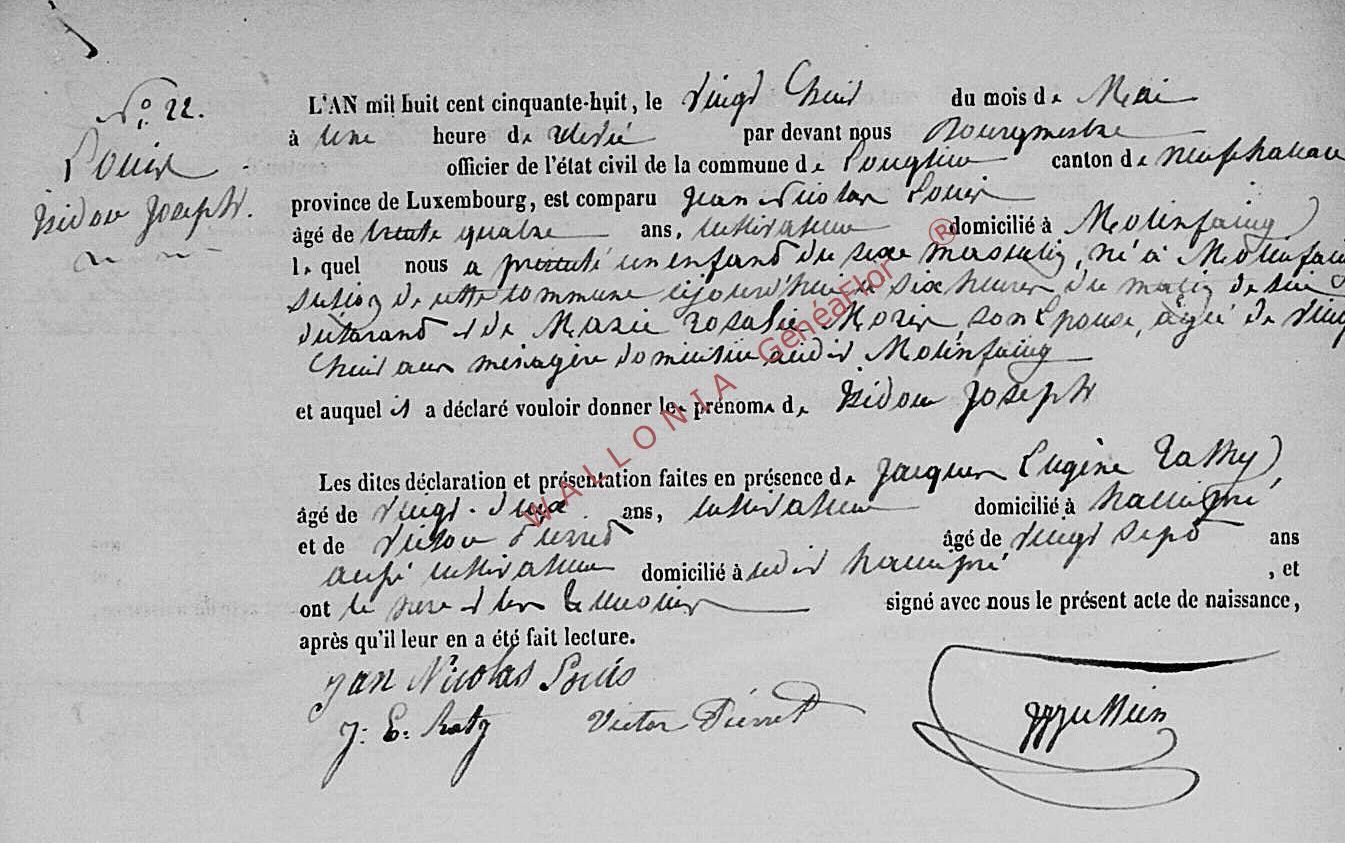 N° 22.
Louis
Isidore Joseph.
L'AN mil huit cent cinquante-huit, le vingt huit du mois de Mai
à une heure de relevée par devant nous Bourgmestre
officier de l'état civil de la commune de Longlier canton de neufchateau
province de Luxembourg, est comparu Jean Nicolas Louis
âgé de trente quatre ans, cultivateur domicilié à Molinfaing
lequel nous a présenté un enfant du sexe masculin, né à Molinfaing
section de cette commune cejourd'hui à six heures du matin de lui
déclarant et de Marie Rosalie Moris, son Epouse, âgée de vingt
huit ans ménagère domiciliée audit Molinfaing
et auquel il a déclaré vouloir donner les prénoms de Isidore Joseph
Les dites déclaration et présentation faites en présence de Jacques Eugène
âgé de vingt-deux ans, cultivateur domicilié à hamipré
et de Victor Pierret âgé de vingt sept ans
aussi cultivateur domicilié à hamipré, et
ont le père et les témoins signé avec nous le présent acte de naissance,
après qu'il leur en a été fait lecture.
Jan Nicolas Louis
J: E: Ratz Victor Pierret
WALLONIA GenéaFlor ®